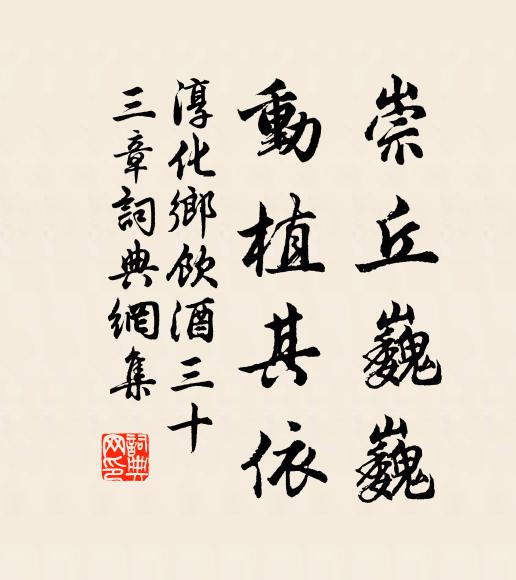 崇丘巍巍
動植其依
淳化鄉飲酒三十
三章詞典網集
詞典網印